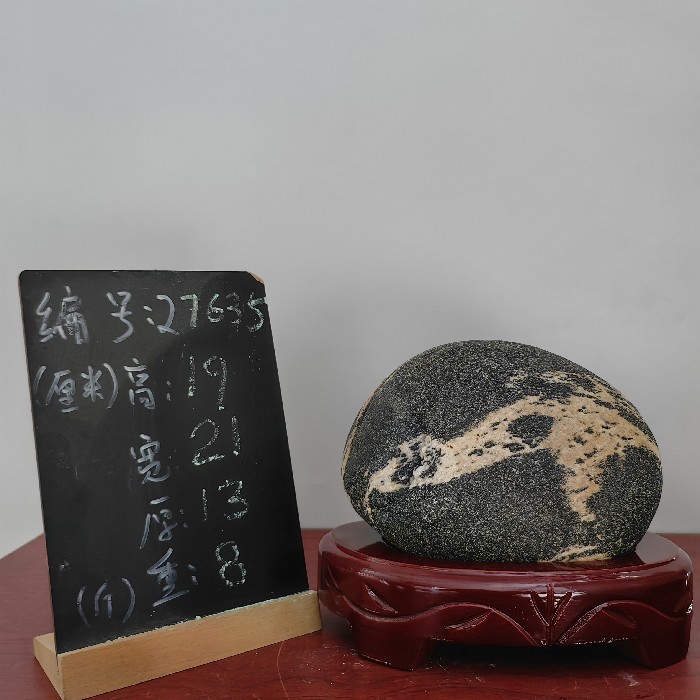 编号:27635
(厘米)高:19
宽:21
厚:13
(斤)重:8